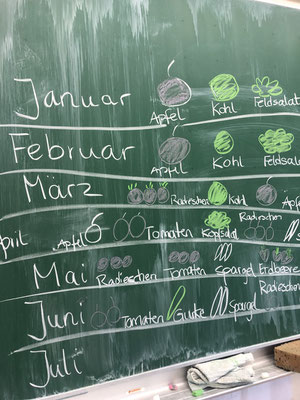 Januar Apfel Kohl Feldsalat
Februar Apfel Kohl Feldsa
März Radieschen Kohl Apf
pril Apfel Tomaten Kopfsalat Radieschen
Mai Radieschen Tomaten Spargel Erdbeere Radieschen
Juni Tomaten Gurke Spargel
Juli